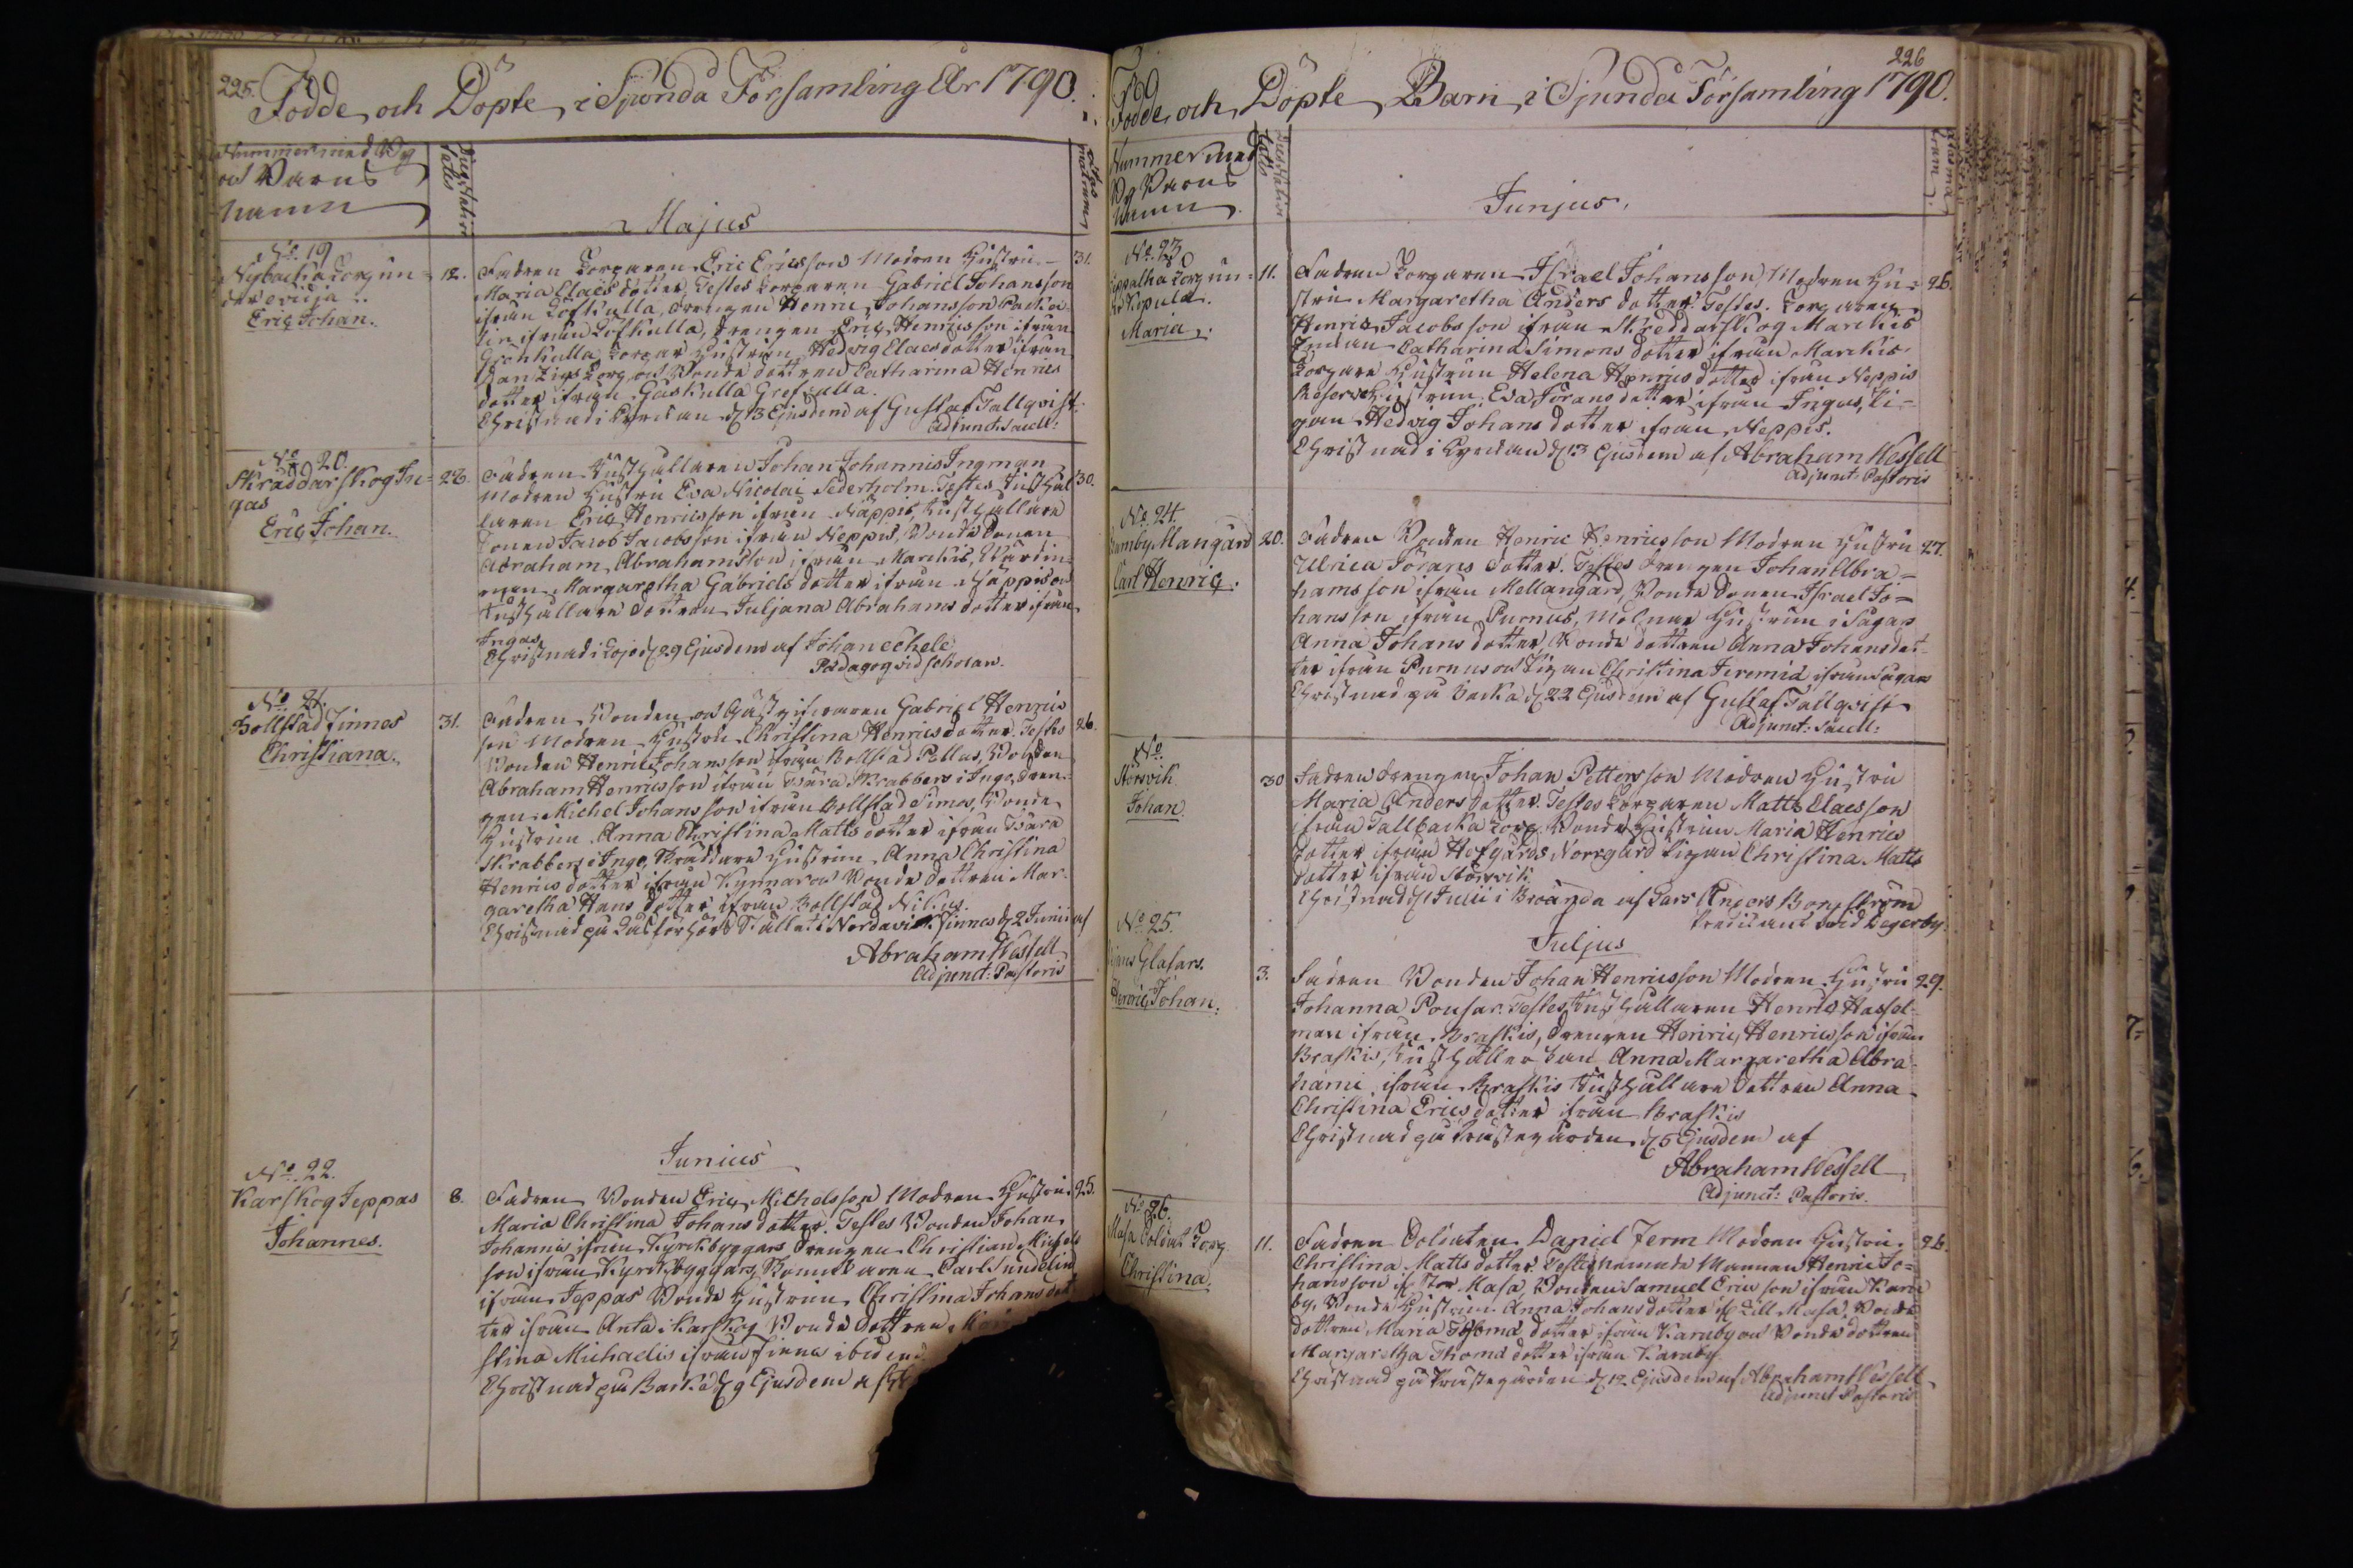 225. Födde och Döpte i Sjunda Församling År 1790.
Nummer med By
och Barns
namn
Födelse
Majus
No. 19
Nybacka torp un-
der evidja
Eric Johan.
12.
Fadren Torparen Eric Ericsson Modren Hustru
31.
Maria Claes dotter, Testes Torparen Gabriel Johansson
ifrån Löfkulla, drengen Henric Johansson
ifrån Löfkulla, drengen Eric Henricsson ifrån
Grönkulla Torpar Hustrun Hedvig Claes dotter ifrån
Torp och Bonde dottren Catharina Henrics
dotter ifrån Gåskulla
Christnad i Kyrckan d 13 Ejusdem af Gustaf Tallqvist
Adjunct: Sacell:
No. 20.
Skräddarskog In-
gas
Eric Johan.
22.
Fadren Rusthållaren Johan Johannis Ingman
30.
Modren Hustru Eva Nicolai Sederholm. Testes Rusthål
laren Eric Henricsson ifrån Näppis, Rusthållare
Sonen Jacob Jacobsson ifrån Neppis, Bonde Sonen
Abraham Abrahamsson ifrån Marckis, Wärdin-
nan Margaretha Gabriels dotter ifrån Näppis och
Rusthållare dottren Juljana Abrahams dotter ifrån
Ingas
Christnad i Lojo d 29 Ejusdem af Johan Echele
Pædagog vid scholan.
No. 21.
Bollstad Finnas
Christiana.
31.
Fadren Bonden och Gästgifvaren Gabriel Henrics
26.
son Modren Hustru Christina Henrics dotter. Testes
Bonden Henric Johansson ifrån Bollstad Pellas, Bonden
Abraham Henricsson ifrån Bära Skrabbers i Inge, dren-
gen Michel Johansson ifrån Bollstad Simos, Bonde
Hustrun Anna Christina Matts dotter ifrån Bära
Skrabbers i Inge, Skräddare Hustrun Anna Christina
Henrics dotter ifrån Kynnar och Bonde dottren Mar-
garetha Hans dotter ifrån Bollstad Nilsas.
Christnad på Läsförhörs Stället i Nordavik Finnas d 2 Junii af
Abraham Wessell
Adjunct: Pastoris
Junius
No. 22.
Karskog Jeppas
Johannes.
8.
Fadren Bonden Eric Michelsson Modren Hustru
25.
Maria Christina Johans dotter. Testes Bonden Johan
Johannis ifrån Kyrckbyggars drengen Christian Michels
son ifrån Kyrckbyggars, Carl Sundelin
ifrån Jeppas Bonde Hustrun Christina Johans dot
ter ifrån Anta i Karskog Bonde dottren
stina Michaelis ifrån Finna ibidem
Christnad på Backa d 9 Ejusdem af
226
Födde och Döpte Barn i Sjunda Församling 1790.
Nummer med
By Barns
namn
Junjus.
No. 23
torp un-
Maria.
11.
Fadren Torparen Israel Johansson Modren Hu-
26.
stru Margaretha Anders dotter Testes. Torparen
Henric Jacobsson ifrån Skreddarskog Marckis
Catharina Simons dotter ifrån Marckis
Torpare Hustrun Helena Henrics dotter ifrån Neppis
Hustrun Eva Görans dotter ifrån Ingas, Pi-
gan Hedvig Johans dotter ifrån Neppis.
Christnad i Kyrckan d 13 Ejusdem af Abraham Wessell
Adjunct: Pastoris
No. 24.
Mangård
Carl Henric.
20.
Fadren Bonden Henric Henricsson Modren Hustru
27.
Ulrica Görans dotter. Testes drengen Johan Abra-
hamsson ifrån Mellangård, Bonde Sonen Israel Jo-
hansson ifrån Purnus, Mölnar Hustrun i Sågars
Anna Johans dotter, Bonde dottren Anna Johans dot-
ter ifrån Purnus och Pigan Christina Jeremiæ ifrån Sågars
Christnad på Backa d 22 Ejusdem af Gustaf Tallqvist
Adjunct: Sacell:
No.
Störsvik
Johan.
30
Fadren drengen Johan Pettersson Modren Hustru
Maria Anders dotter. Testes Torparen Matts Claesson
ifrån Tallbacka torp, Bonde Hustrun Maria Henrics
dotter ifrån Hofgårds Norrgård Pigan Christina Matts
dotter ifrån Störsvik.
Christnad d 1 Julii i Broända af Lars Anders Bergström
Predikant vid Degerby
Juljus
No. 25.
Glasars.
Henric Johan.
3.
Fadren Bonden Johan Henricsson Modren Hustru
29.
Johanna Ponsar. Testes Rusthållaren Henric Hassel-
man ifrån Braskis, drengen Henric Henricsson ifrån
Braskis, Rusthållerskan Anna Margaretha Abra-
hami ifrån Braskis Rusthållare dottren Anna
Christina Erics dotter ifrån Braskis
Christnad på Prästegården d 5 Ejusdem af
Abraham Wessell
Adjunct: Pastoris.
No. 26.
Masa Soldat Torp
Christina.
11.
Fadren Soldaten Daniel Ferm Modren Hustru
26.
Christina Matts dotter. Testes Nämnde Mannen Henric Jo-
hansson if Stor Masa, Bonden Samuel Ericsson ifrån Karu
by, Bonde Hustrun Anna Johans dotter if Lill Masa, Bonde
dottren Maria Thomæ dotter ifrån Karuby och Bonde dottren
Margaretha Thomæ dotter ifrån Karuby
Christnad på Prästegården d 12 Ejusdem af Abraham Wessell
Adjunct Pastoris